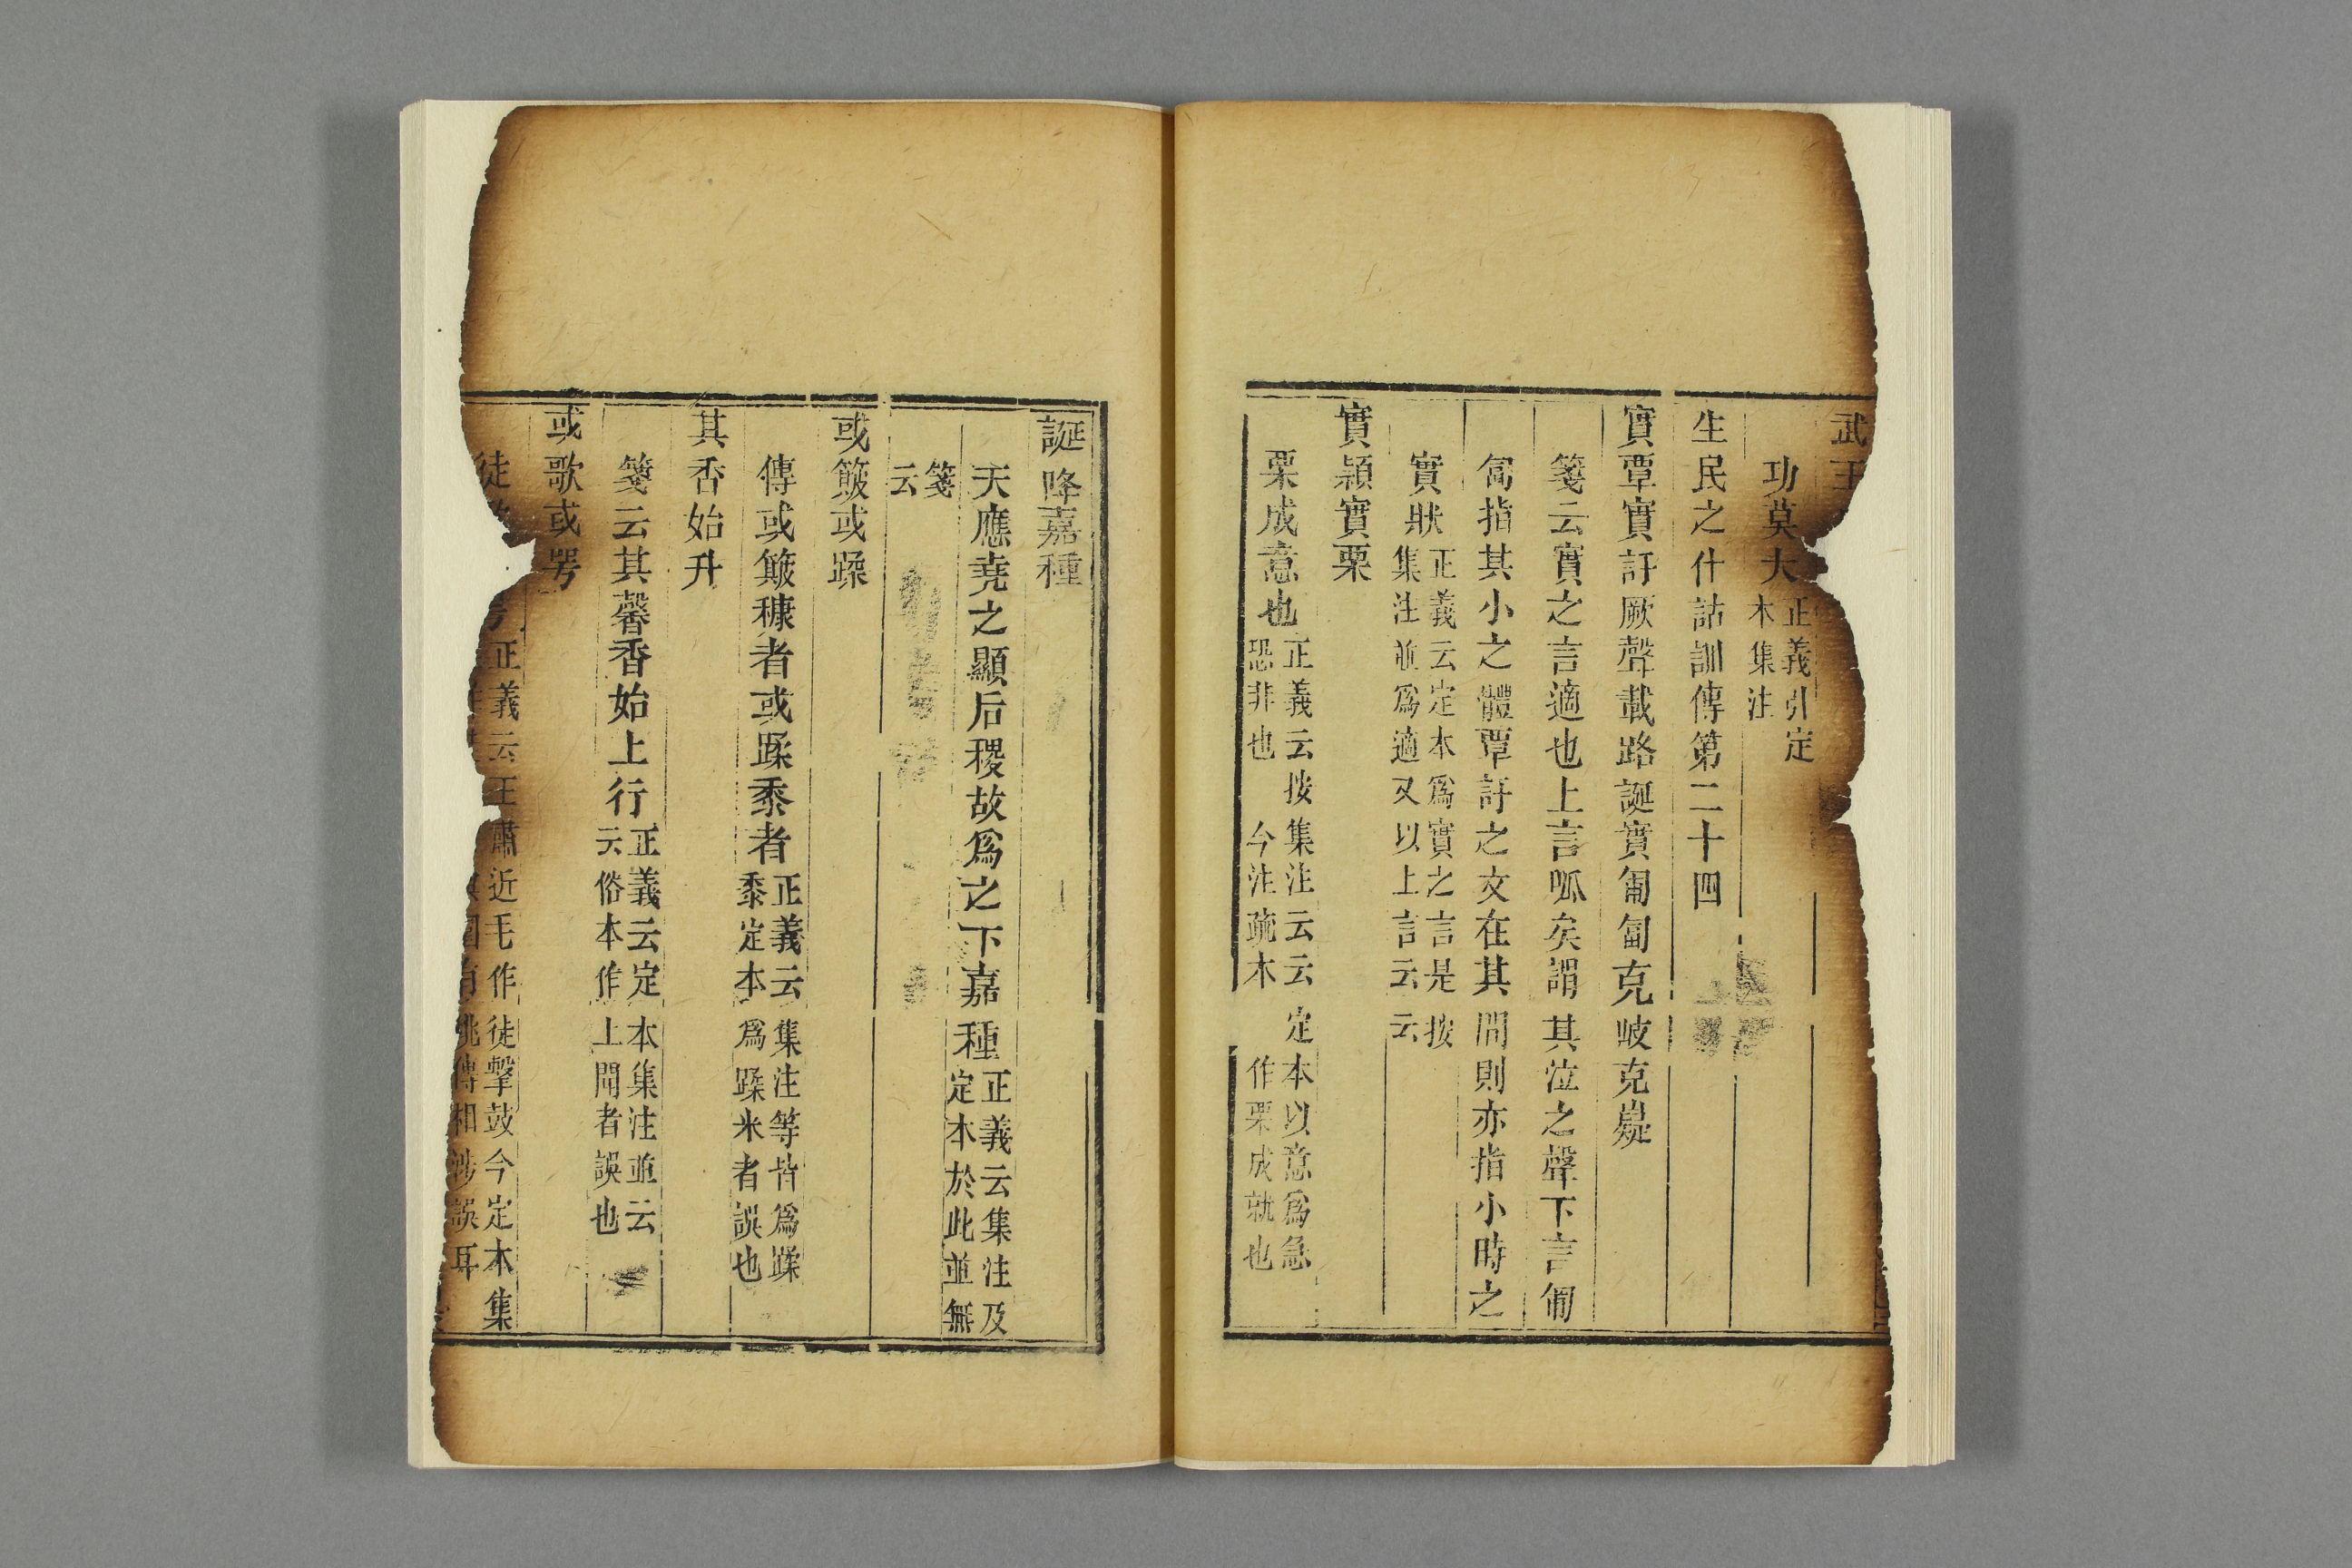 武王
功莫大正義引定本集注
生民之什詁訓傳第二十四
實覃實訏厥聲載路誕實匍匐克岐克嶷
箋云實之言適也上言呱矣謂其泣之聲下言匍
匐指其小之體覃訏之文在其間則亦指小時之
實狀正義云定本爲實之言是按集注並爲適又以上言云云
實穎實栗
栗成意也正義云按集注云云定本以意爲急恐非也今注疏本作栗成就也
誕降嘉種
天應堯之顯后稷故爲之下嘉種正義云集注及定本於此並無
箋云
或簸或蹂
傳或簸穅者或蹂黍者正義云集注等皆爲蹂黍定本爲蹂米者誤也
其香始升
箋云其馨香始上行正義云定本集注並云云俗本作上聞者誤也
或歌或咢
徒正義云王肅近毛作徒擊鼓今定本集傳相涉誤耳